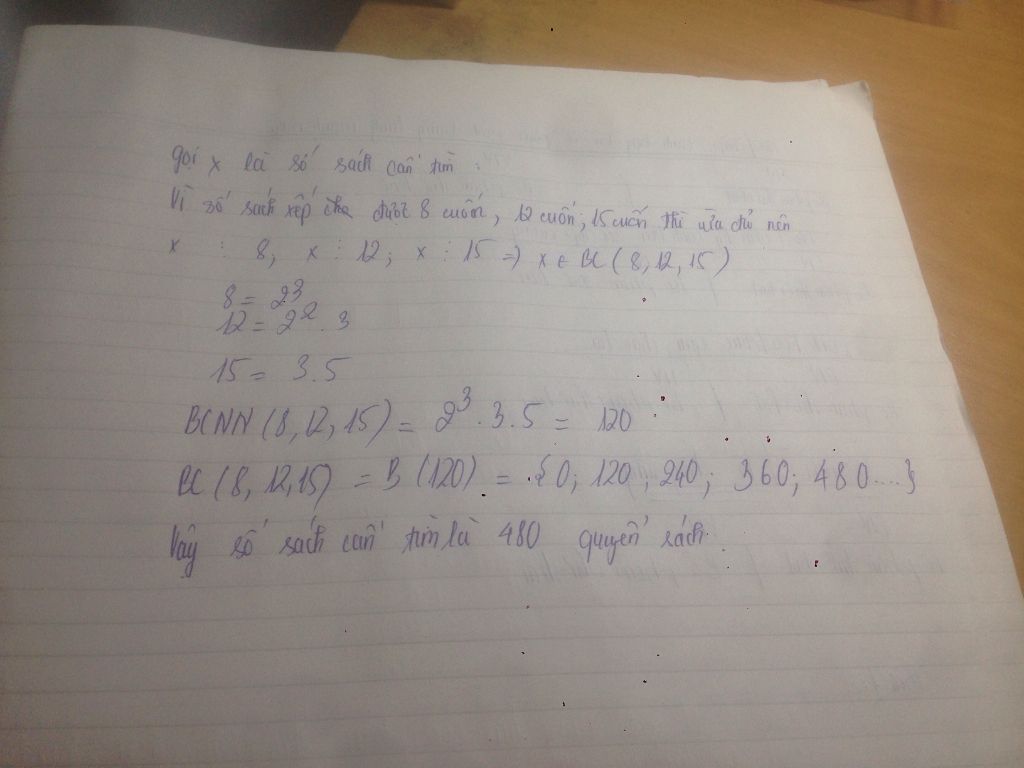 gọi x là số sách cần tìm :
Vì số sách xếp được 8 cuốn, 12 cuốn; 15 cuốn thì vừa đủ nên
x ⋮ 8, x ⋮ 12; x ⋮ 15 => x ∈ BC (8,12,15)
8 = 2³
12 = 2² . 3
15 = 3.5
BCNN (8,12,15) = 2³ . 3.5 = 120
BC (8,12,15) = B (120) = {0; 120; 240; 360; 480....}
Vậy số sách cần tìm là 480 quyển sách.